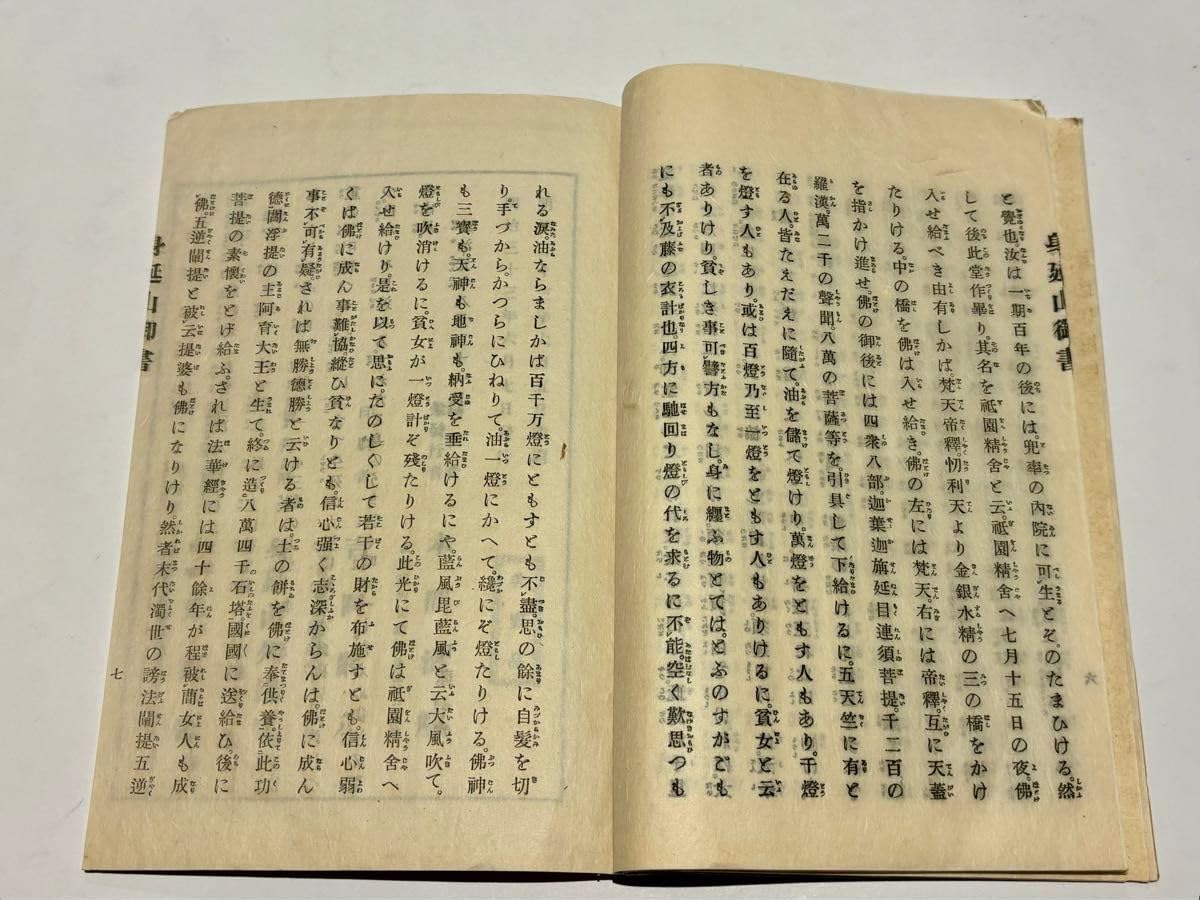 身延山御書
と覺也汝は一期百年の後には。兜率の內院に可生とぞ。のたまひける。然
して後此堂作畢り。其名を祗園精舍と云。祗園精舍へ七月十五日の夜。佛
入せ給べき由有しかば。梵天帝釋。忉利天より金銀水精の三の橋をかけ
たりける。中の橋を佛は入せ給き。佛の左には梵天右には帝釋。互に天蓋
を指かけ進せ。佛の御後には四衆八部。迦葉迦旃延目連須菩提。千二百の
羅漢。萬二千の聲聞。八萬の菩薩等を。引具して下給けるに。五天竺に有と
在る人。皆たえだえに隨て。油を儲て燈けり。萬燈をともす人もあり。千燈
を燈す人もあり。或は百燈乃至一燈をともす人もありけるに。貧女と云
者ありけり。貧しき事可譬方もなし。身に纒ふ物とては。とふのすがごも
にも不及藤の衣計也四方に馳回り燈の代を求るに不能。空く歎思つも
六
れる淚油ならましかば百千万燈にともすとも不盡。思の餘に自髮を切
り。手づから。かつらにひねりて。油一燈にかへて。纔にぞ燈たりける。佛神
も三寶も。天神も地神も。納受を垂給けるにや。藍風毘藍風と云大風吹て。
燈を吹消けるに。貧女が一燈計ぞ殘たりける。此光にて佛は祗園精舍へ
入せ給けり。是を以て思に。たのしくして若干の財を布施すとも。信心弱
くば佛に成ん事難協縱ひ貧なりとも。信心强く志深からんは。佛に成ん
事不可有疑されば無勝德勝と云ける者は。土の餅を佛に奉供養。依此功
德閻浮提の主阿育大王と生て。終に造八萬四千石塔。國國に送給ひ。後に
菩提の素懷をとげ給ふ。されば法華經には四十餘年が程被𥳑女人も成
佛。五逆闡提と被云提婆も佛になりけり。然者末代濁世の謗法闡提五逆
身延山御書
七